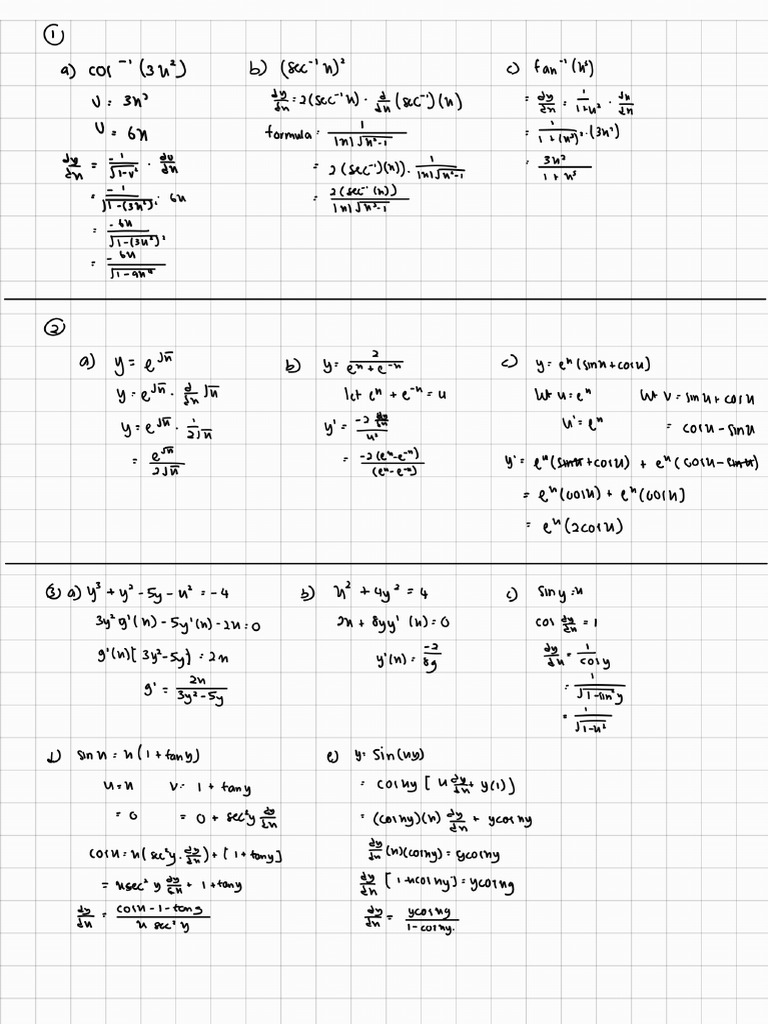 ①
a) cos⁻¹(3x²)
U = 3x²
U = 6x
dy/dx = -1/√(1-v²) · dv/dx
= -1/√(1-(3x²)²) · 6x
= -6x/√(1-(3x²)²)
= -6x/√(1-9x⁴)
b) (sec⁻¹x)²
dy/dx = 2(sec⁻¹x) · d/dx (sec⁻¹)(x)
formula = 1/(|x|√(x²-1))
= 2(sec⁻¹)(x)) · 1/(|x|√(x²-1))
= 2(sec⁻¹(x))/(|x|√(x²-1))
c) tan⁻¹(x³)
= dy/dx = 1/(1+u²) · du/dx
= 1/(1+(x³)²) · (3x²)
= 3x²/(1+x⁶)
②
a) y = e^√x
y = e^√x · d/dx √x
y = e^√x · 1/(2√x)
= e^√x/(2√x)
b) y = 2/(eˣ+e⁻ˣ)
let eˣ + e⁻ˣ = u
y' = (-2 du/dx)/u²
= -2(eˣ-e⁻ˣ)/(eˣ-e⁻ˣ)
c) y = eˣ(sinx+cosx)
let u = eˣ let v = sinx + cosx
u' = eˣ = cosx - sinx
y' = eˣ(sinx+cosx) + eˣ(cosx-sinx)
= eˣ(cosx) + eˣ(cosx)
= eˣ(2cosx)
③ a) y³ + y² - 5y - x² = -4
3y²y'(x) - 5y'(x) - 2x = 0
y'(x)[3y²-5y] = 2x
y' = 2x/(3y²-5y)
b) x² + 4y² = 4
2x + 8yy'(x) = 0
y'(x) = -2/8y
c) siny = x
cos dy/dx = 1
dy/dx = 1/cosy
= 1/√(1-sin²y)
= 1/√(1-x²)
d) sinx = x(1+tany)
u = x v = 1 + tany
= 0 = 0 + sec²y dy/dx
cosx = x(sec²y · dy/dx) + [1+tany]
= xsec²y dy/dx + 1 + tany
dy/dx = (cosx-1-tany)/(x sec²y)
e) y = sin(xy)
= cosxy [x dy/dx + y(1)]
= (cosxy)(x) dy/dx + ycosxy
dy/dx (x)(cosxy) = ycosxy
dy/dx [1-xcosxy] = ycosxy
dy/dx = ycosxy/(1-cosxy.)